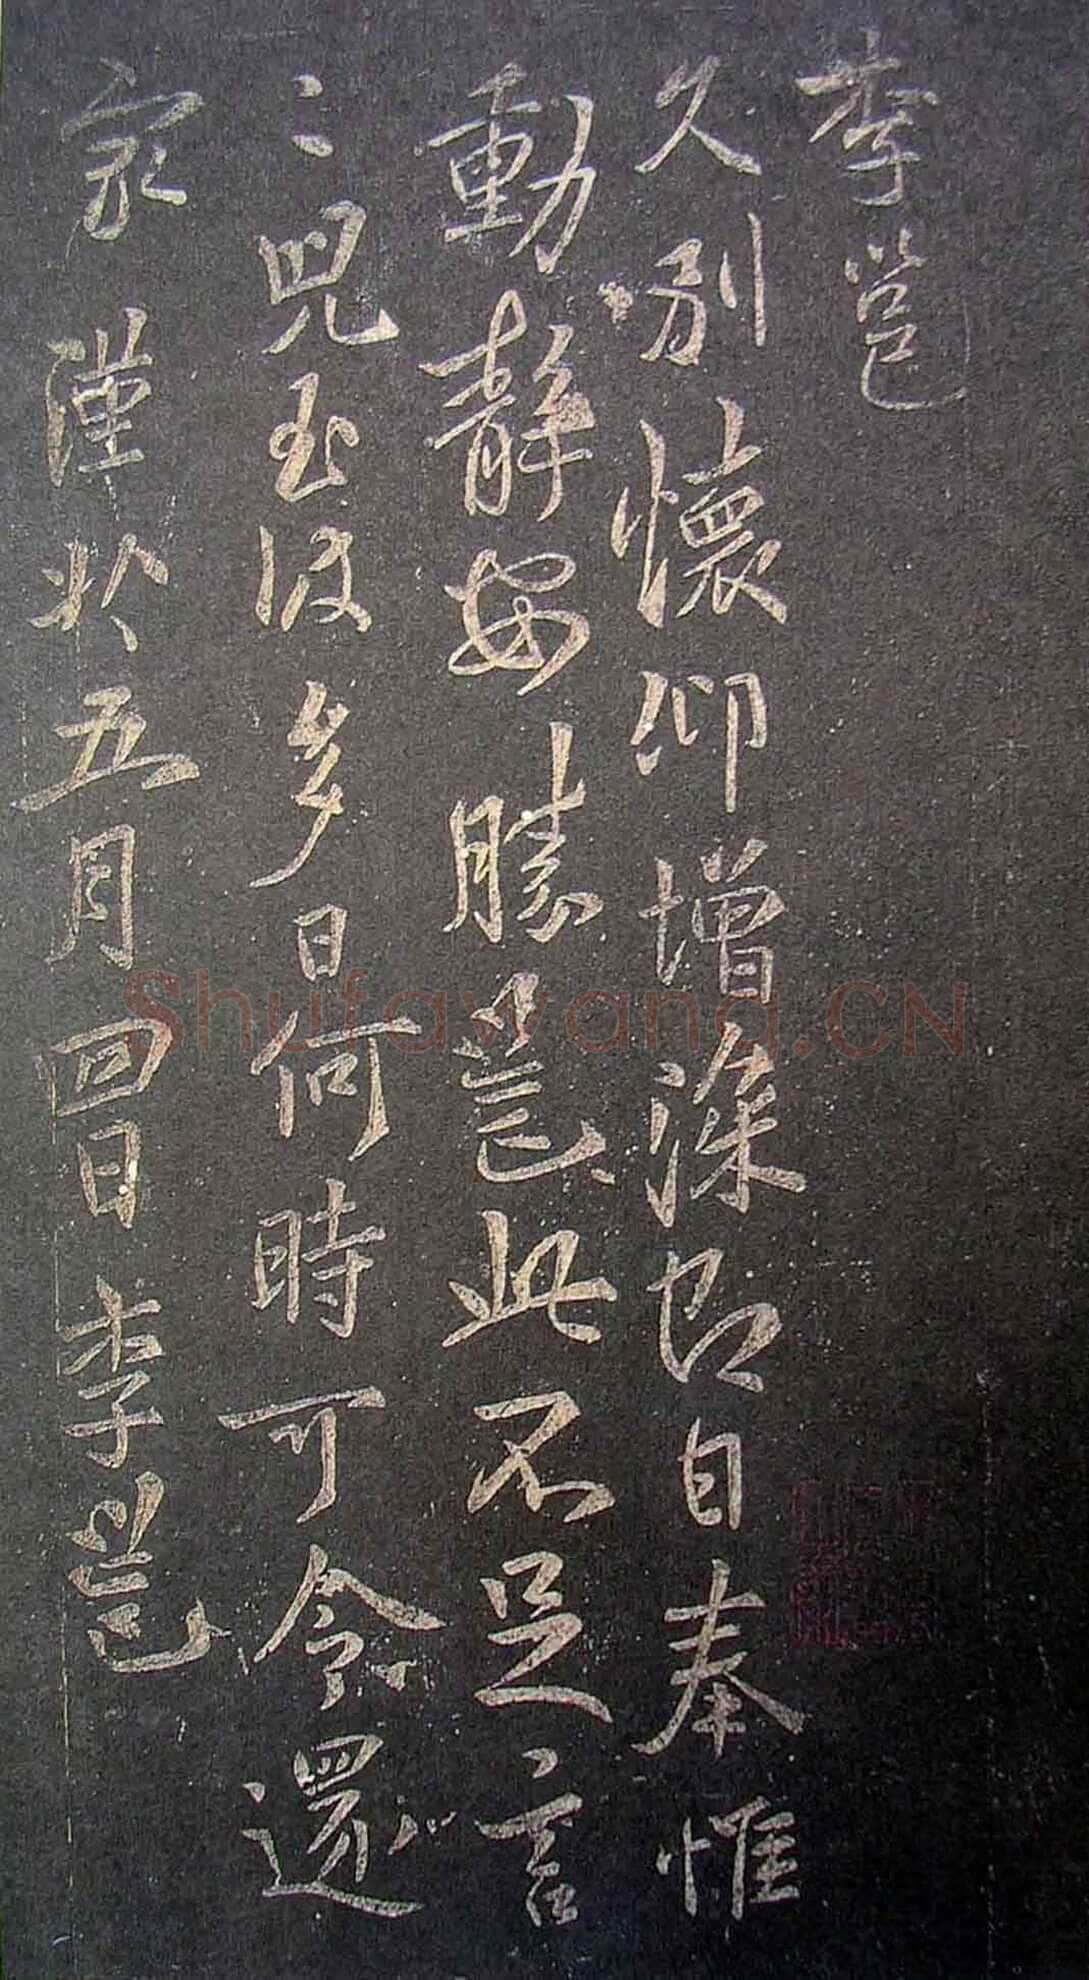 李邕
久別懷仰增深即日奉惟
動靜安勝邕此不足言
〻兒至彼多日何時可令還
家謹狀五月四日李邕
Shufawang.CN